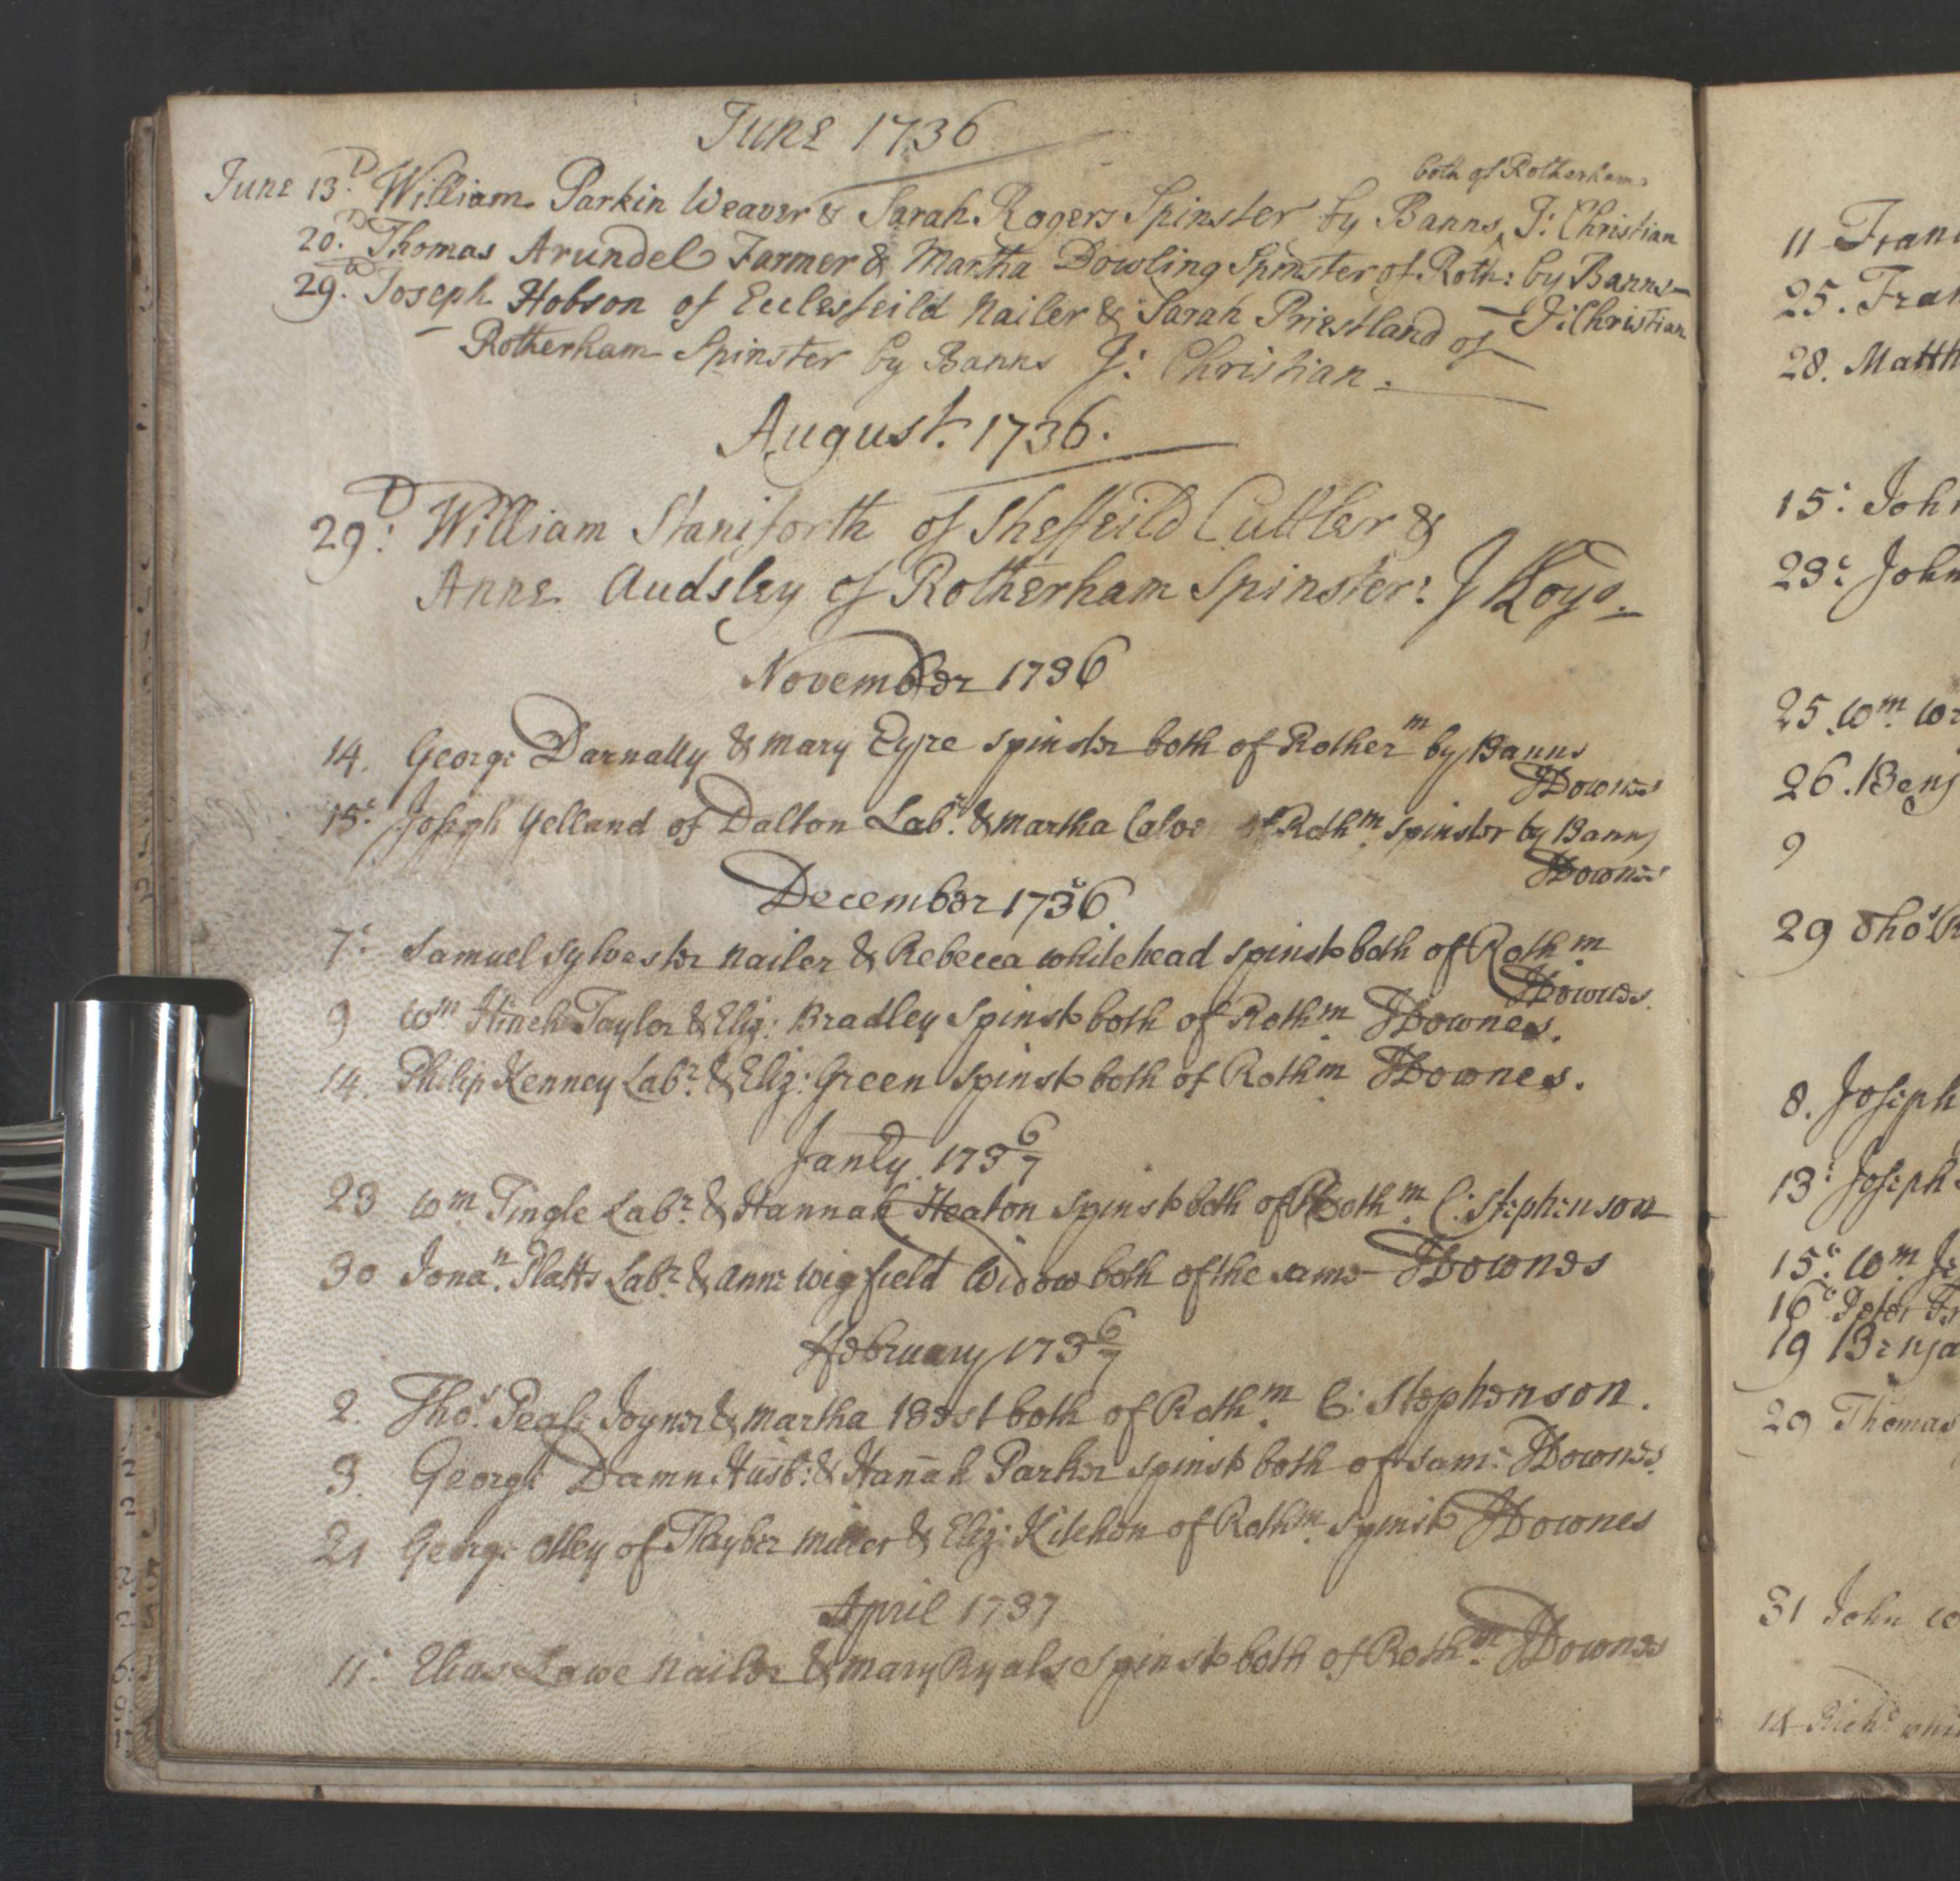 June 1736
both of Rotherham
June 13.D William Parkin Weaver & Sarah Rogers Spinster by Banns ^ J: Christian
20.D Thomas Arundel Farmer & Martha Dowling Spinster of Roth: by Banns —
— J: Christian
29. Joseph Hobson of Ecclesfeild Nailer & Sarah Priestland of
Rotherham Spinster by Banns J: Christian.
August. 1736.
29.D: William Staniforth of Sheffeild Cuttler &
Anne Audsley of Rotherham Spinster: J Lloyd.
November 1736
14. George Darnally & Mary Eyre spinster both of Rotherm by Banns
JDownes
15: Joseph Yelland of Dalton Labr. & Martha of Rothm. spinster by Banns
JDownes
December 1736
7: Samuel Sylvester Nailer & Rebecca Whitehead spinstr both of Rothm.
JDownes.
9 Wm Hinch Taylor & Eliz: Bradley Spinstr both of Rothm. JDownes.
14. Philip Kenney Labr. & Eliz: Green Spinstr both of Rothm. JDownes.
Janry. 173 6/7
23 Wm. Tingle Labr. & Hannah Heaton Spinstr both of Rothm. C: Stephenson
30 Jonan. Platts Labr. & Anne Wigfield Widow both of the same JDownes
February 173 6/7
2. Thos. Pease Joyner & Martha Best both of Rothm. C: Stephenson.
3. George Damn Husb: & Hannah Parker spinstr both of same JDownes.
21 George Otley of miller & Eliz: Kitchen of Rothm. spinstr JDownes
April 1737
11: Elias Lowe Nailer & Mary Ryals Spinstr both of Rothm. JDownes
11 Fran
25. Fran
28. Matth
15: John
23: John
25 Wm. W
26. Benj
9
29 Thos
8. Joseph
13: Joseph
15: Wm. J
16: Peter
19 Benja
29 Thomas
31 John
14 Richd